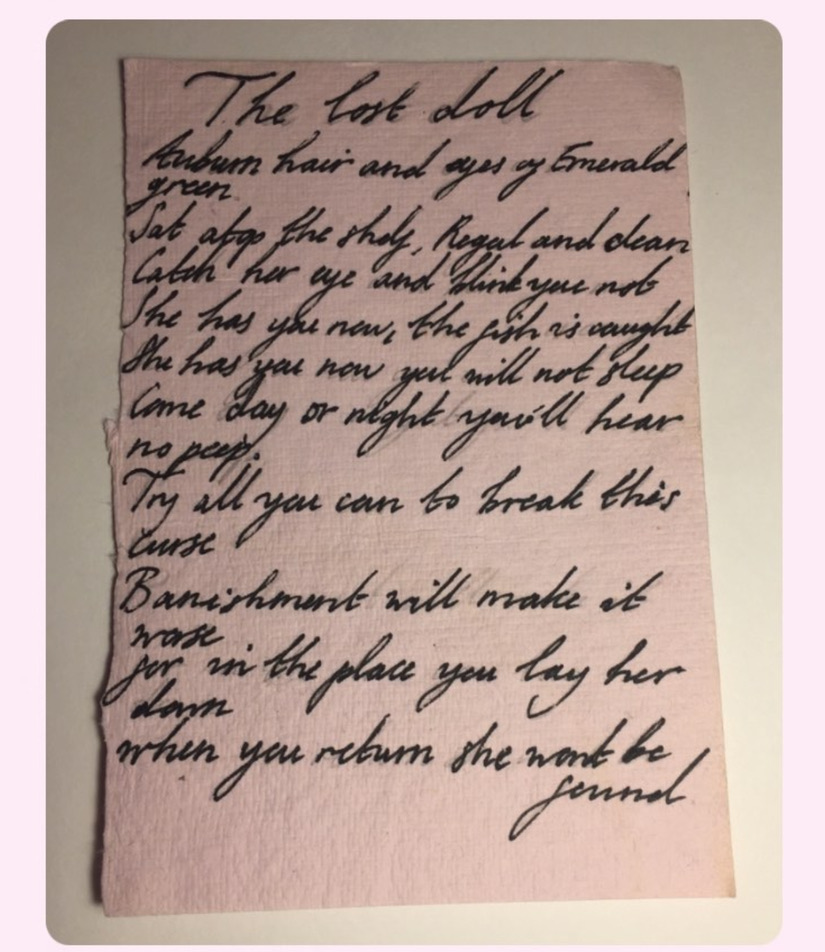 The lost doll
Auburn hair and eyes of Emerald
green
Sat atop the shelf, Regal and clean
Catch her eye and blink you not
She has you now, the fish is caught
She has you now you will not sleep
Come day or night you'll hear
no peep.
Try all you can to break this
curse
Banishment will make it
worse
for in the place you lay her
down
when you return she wont be
found